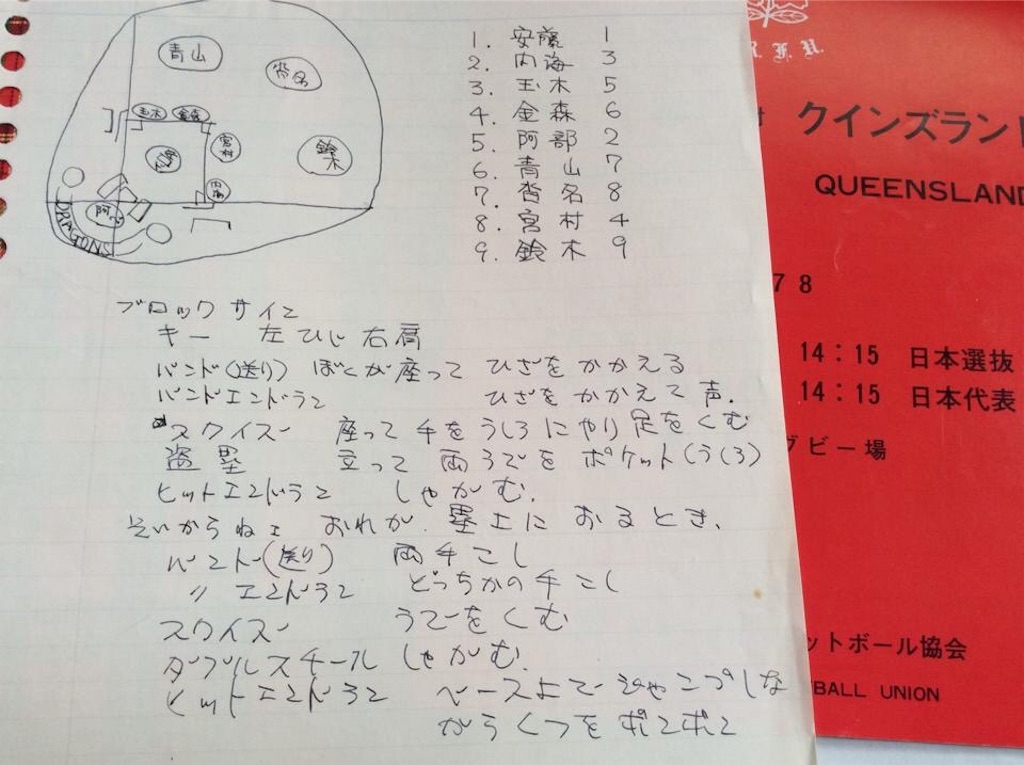 青山
沓名
玉木
金森
宮村
安藤
鈴木
内海
阿べ
DRAGONS
1. 安藤 1
2. 内海 3
3. 玉木 5
4. 金森 6
5. 阿部 2
6. 青山 7
7. 沓名 8
8. 宮村 4
9. 鈴木 9
ブロックサイン
キー 左ひじ右肩
バント(送り) ぼくが座って ひざをかかえる
バントエンドラン ひざをかかえて声.
スクイズ 座って手をうしろにやり足をくむ
盗塁 立って両うでをポケット(うしろ)
ヒットエンドラン しゃがむ.
そいからねェ おれが.塁上におるとき.
バント(送り) 両手こし
〃エンドラン どっちかの手こし
スクイズ うでをくむ
ダブルスチール しゃがむ.
ヒットエンドラン ベース上でじゃンプしな
がらくつをポンポン
R.F.U.
クインズランド
QUEENSLAND
78
14:15 日本選抜
14:15 日本代表
グビー場
ットボール協会
BALL UNION